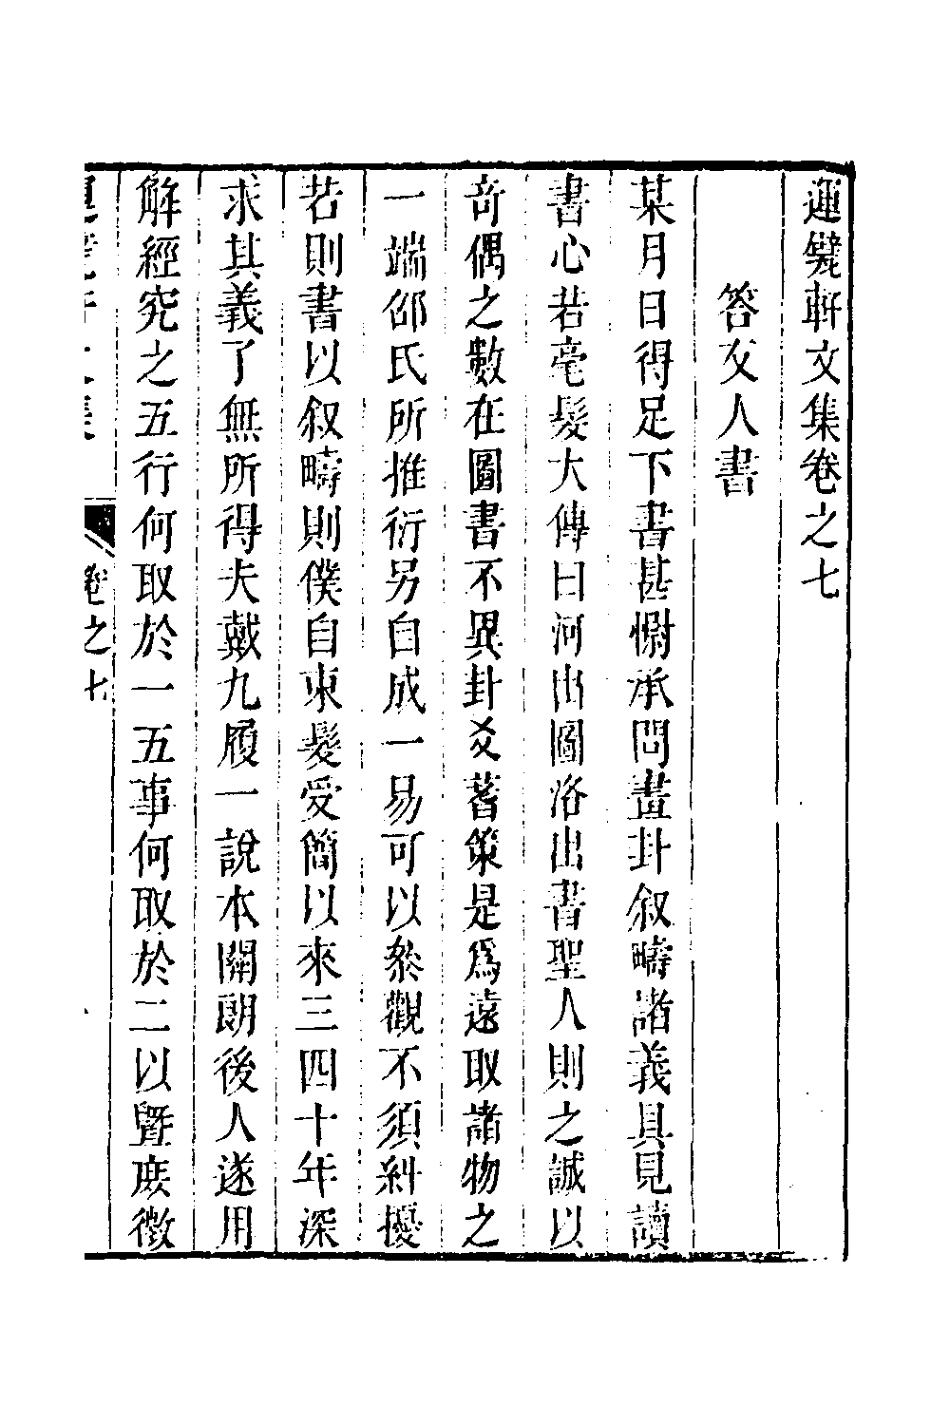 運甓軒文集卷之七
答友人書
某月日得足下書甚慰承問畫卦叙疇諸義具見讀
書心若毫髮大傳曰河出圖洛出書聖人則之誠以
奇偶之數在圖書不異卦爻蓍策是爲遠取諸物之
一端邵氏所推衍另自成一易可以叅觀不須糾擾
若則書以叙疇則僕自束髮受簡以來三四十年深
求其義了無所得夫戴九履一說本關朗後人遂用
解經究之五行何取於一五事何取於二以曁庶徵
卷之七